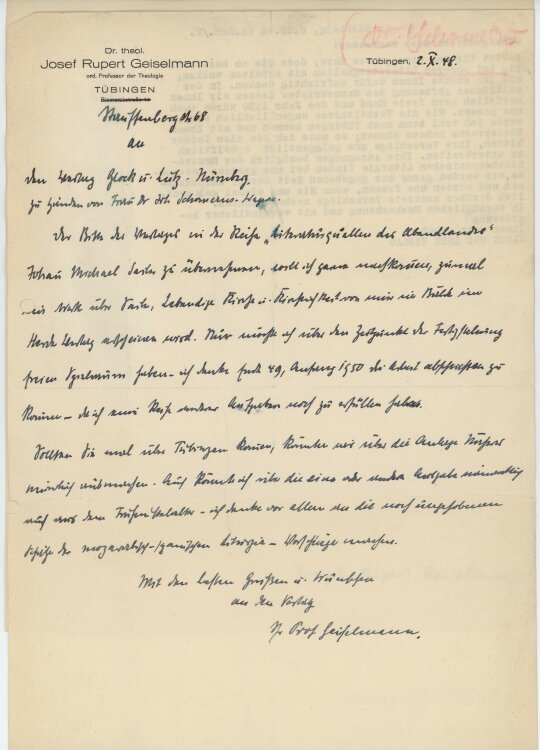 Dr. theol.
Josef Rupert Geiselmann
ord. Professor der Theologie
TÜBINGEN
Bismarckstraße
Stauffenbergstr 68
Tübingen, 2. X. 48.
an
den Verlag Glock u. Lutz - Nürnberg.
zu Händen von Frau Dr
Der Bitte des Verlages in der Reihe „Literaturquellen des Abendlandes"
Johann Michael Sailer zu übernehmen, will ich gerne nachkommen, zumal
ein Werk über Sailer, Lebendige Kirche u. von mir in Bälde im
Herder Verlag erscheinen wird. Nur möchte ich über den Zeitpunkt der Fertigstellung
freien Spielraum haben - ich denke Ende 49, Anfang 1950 die Arbeit abschließen zu
können - da ich eine Reihe anderer Aufgaben noch zu erfüllen habe.
Sollten Sie mal über Tübingen kommen, könnten wir über die Anlage Näheres
mündlich ausmachen. Auch könnte ich über die eine oder andere Ausgabe namentlich
auch aus dem Frühmittelalter - ich denke vor allem an die noch ungehobenen
Schätze der mozarabisch-spanischen Liturgie - Vorschläge machen.
Mit den besten Grüßen u. Wünschen
an den Verlag
Ihr Prof Geiselmann.